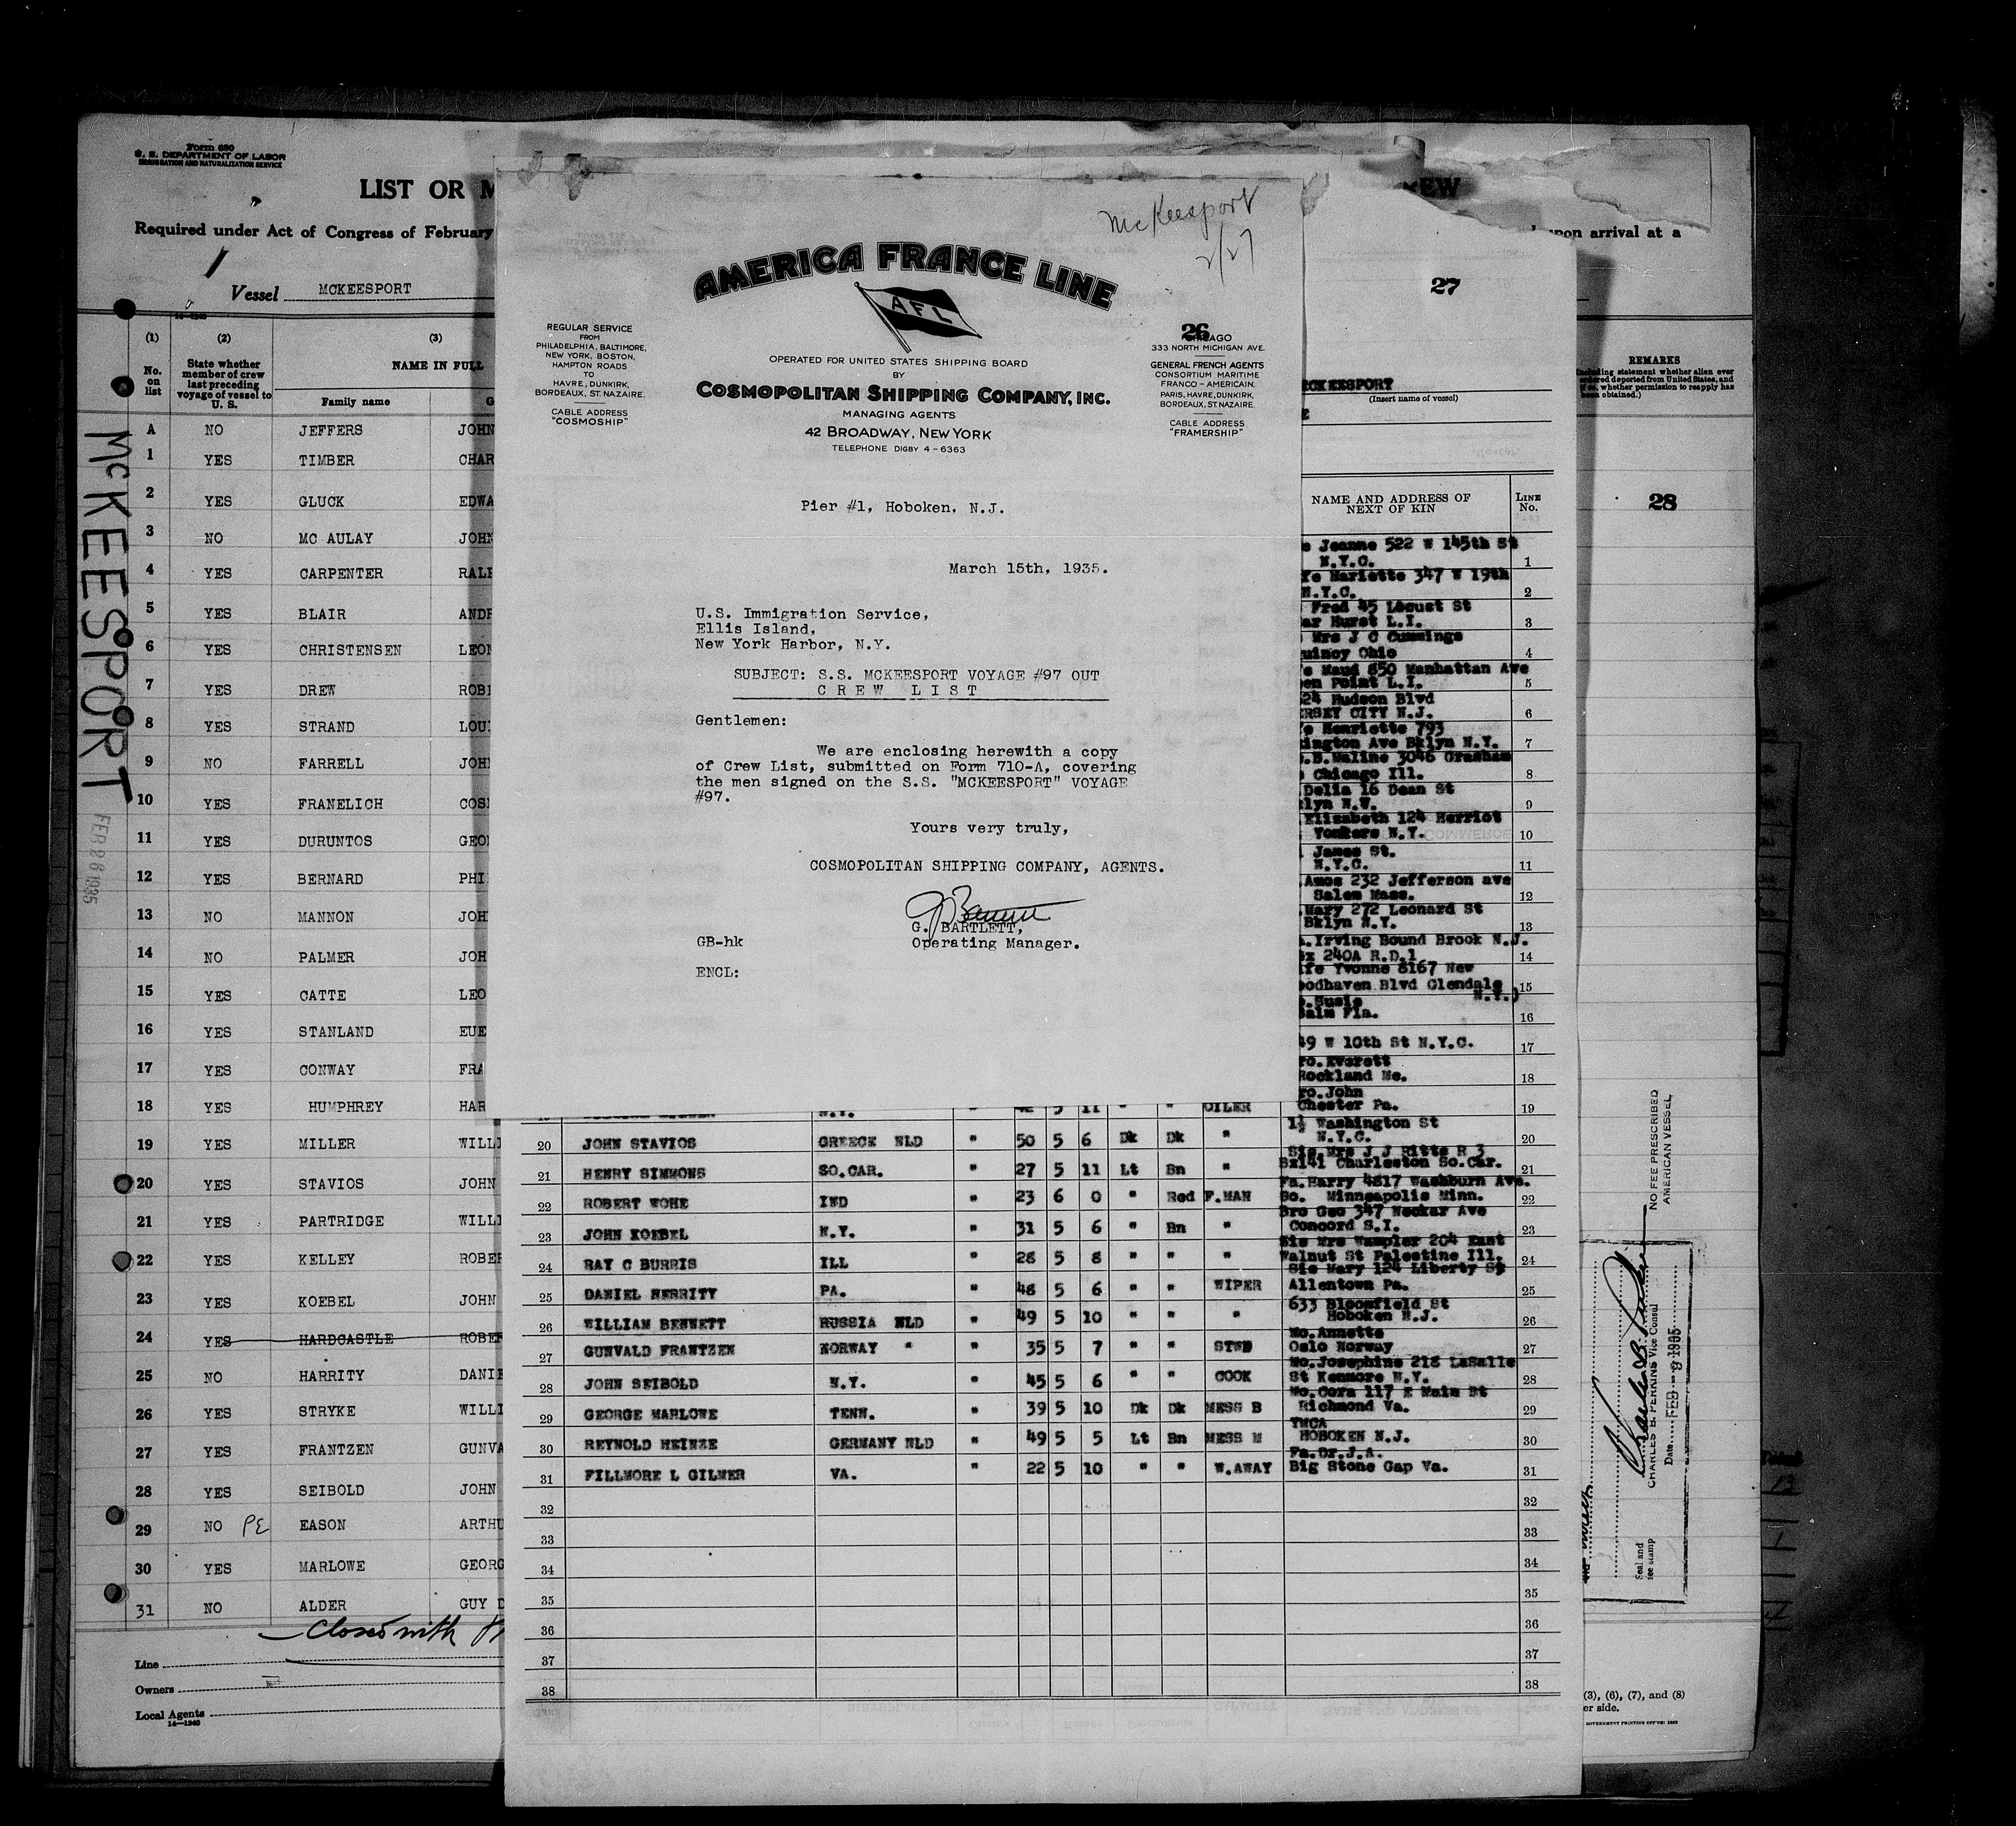 Form 680
U. S. DEPARTMENT OF LABOR
IMMIGRATION AND NATURALIZATION SERVICE
LIST OR M
Required under Act of Congress of February
Vessel MCKEESPORT
(1) (2) (3)
No. on list
State whether member of crew last preceding voyage of vessel to U. S.
NAME IN FULL
Family name
A NO JEFFERS JOHN
1 YES TIMBER CHAR
2 YES GLUCK EDWA
3 NO MC AULAY JOHN
4 YES CARPENTER RALP
5 YES BLAIR ANDR
6 YES CHRISTENSEN LEON
7 YES DREW ROBE
8 YES STRAND LOUI
9 NO FARRELL JOHN
10 YES FRANELICH COSM
11 YES DURUNTOS GEOR
12 YES BERNARD PHI
13 NO MANNON JOH
14 NO PALMER JOH
15 YES CATTE LEO
16 YES STANLAND EUE
17 YES CONWAY FRA
18 YES HUMPHREY HAR
19 YES MILLER WILLI
20 YES STAVIOS JOHN
21 YES PARTRIDGE WILLI
22 YES KELLEY ROBER
23 YES KOEBEL JOHN
24 YES HARDCASTLE ROBER
25 NO HARRITY DANIE
26 YES STRYKE WILLI
27 YES FRANTZEN GUNVA
28 YES SEIBOLD JOHN
29 NO PE EASON ARTHU
30 YES MARLOWE GEORG
31 NO ALDER GUY D
Closed with
Line
Owners
Local Agents
14-1240
McKEESPORT
FEB 26 1935
McKeesport
2/27
AMERICA FRANCE LINE
AFL
REGULAR SERVICE
FROM
PHILADELPHIA, BALTIMORE,
NEW YORK, BOSTON,
HAMPTON ROADS
TO
HAVRE, DUNKIRK,
BORDEAUX, ST. NAZAIRE.
CABLE ADDRESS
"COSMOSHIP"
OPERATED FOR UNITED STATES SHIPPING BOARD
BY
COSMOPOLITAN SHIPPING COMPANY, INC.
MANAGING AGENTS
42 BROADWAY, NEW YORK
TELEPHONE DIGBY 4-6363
26
CHICAGO
333 NORTH MICHIGAN AVE.
GENERAL FRENCH AGENTS
CONSORTIUM MARITIME
FRANCO-AMERICAIN,
PARIS, HAVRE, DUNKIRK,
BORDEAUX, ST. NAZAIRE.
CABLE ADDRESS
"FRAMERSHIP"
Pier #1, Hoboken, N.J.
March 15th, 1935.
U.S. Immigration Service,
Ellis Island,
New York Harbor, N.Y.
SUBJECT: S.S. MCKEESPORT VOYAGE #97 OUT
C R E W L I S T
Gentlemen:
We are enclosing herewith a copy
of Crew List, submitted on Form 710-A, covering
the men signed on the S.S. "MCKEESPORT" VOYAGE
#97.
Yours very truly,
COSMOPOLITAN SHIPPING COMPANY, AGENTS.
G. BARTLETT,
Operating Manager.
GB-hk
ENCL:
27
CKEESPORT
(Insert name of vessel)
NAME AND ADDRESS OF NEXT OF KIN
LINE No.
Jeanne 522 W 145th St
N.Y.C. 1
Mariette 347 W 19th
N.Y.C. 2
Fred 45 Locust St
Hurst L.I. 3
Mrs J C Cummings
uincy Ohio 4
Maud 850 Manhattan Ave
en Point L.I. 5
24 Hudson Blvd
RSEY CITY N.J. 6
Henriette 793
ington Ave Bklyn N.Y. 7
.B.Maline 3046 Gresham
Chicago Ill. 8
Delia 16 Dean St
lyn N.Y. 9
Elizabeth 124 Herriot
Yonkers N.Y. 10
James St.
N.Y.C. 11
Amos 232 Jefferson ave
Salem Mass. 12
Mary 272 Leonard St
Bklyn N.Y. 13
.Irving Bound Brook N.J.
x 240A R.D.1 14
ife Yvonne 8167 New
oodhaven Blvd Glendale N.Y.) 15
.Susie
Palm Fla. 16
49 W 10th St N.Y.C. 17
ro.Everett
Rockland Me. 18
ro.John
OILER Chester Pa. 19
1½ Washington St
20 JOHN STAVIOS GREECE NLD " 50 5 6 Dk Dk " N.Y.C. 20
Sis.Mrs J J Bitts R 3
21 HENRY SIMMONS SO.CAR. " 27 5 11 Lt Bn " Bx141 Charleston So.Car. 21
Fa.Harry 4817 Washburn Ave.
22 ROBERT WOHE IND " 23 6 0 " Red F.MAN So. Minneapolis Minn. 22
Bro Geo 347 Neckar Ave
23 JOHN KOEBEL N.Y. " 31 5 6 " Bn " Concord S.I. 23
Sis Mrs Wampler 204 East
24 RAY C BURRIS ILL " 28 5 8 " " " Walnut St Palestine Ill. 24
Sis Mary 124 Liberty St
25 DANIEL HERRITY PA. " 48 5 6 " " WIPER Allentown Pa. 25
633 Bloomfield St
26 WILLIAM BENNETT RUSSIA NLD " 49 5 10 " " " Hoboken N.J. 26
Mo.Annette
27 GUNVALD FRANTZEN NORWAY " 35 5 7 " " STWD Oslo Norway 27
Mo.Josephine 218 LaSalle
28 JOHN SEIBOLD N.Y. " 45 5 6 " " COOK St Kenmore N.Y. 28
Mo.Cora 117 E Main St
29 GEORGE MARLOWE TENN. " 39 5 10 Dk Dk MESS B Richmond Va. 29
YMCA
30 REYNOLD HEINZE GERMANY NLD " 49 5 5 Lt Bn MESS M HOBOKEN N.J. 30
Fa.Dr.J.A.
31 FILLMORE L GILMER VA. " 22 5 10 " " W.AWAY Big Stone Gap Va. 31
32 32
33 33
34 34
35 35
36 36
37 37
38 38
EW
upon arrival at a
REMARKS
(Including statement whether alien ever ordered deported from United States, and if so, whether permission to reapply has been obtained.)
28
NO FEE PRESCRIBED
AMERICAN VESSEL
CHARLES B. PERKINS Vice Consul
Date FEB - 9 1935
Seal and
fee stamp
(3), (6), (7), and (8)
er side.
GOVERNMENT PRINTING OFFICE